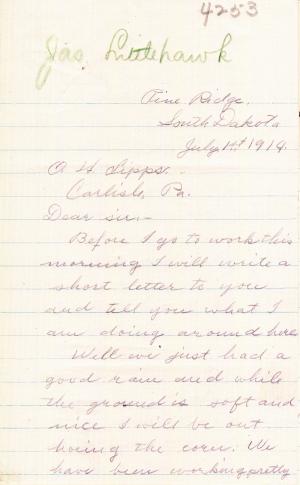 4253
Jas. Littlehawk
Pine Ridge,
South Dakota
July 1st 1914.
O H Lipps.
Carlisle, Pa.
Dear sir,-
Before I go to work this
morning I will write a
short letter to you
and tell you what I
am doing around here
Well we just had a
good rain and while
the ground is soft and
nice I will be out
hoeing the corn. We
have been working pretty